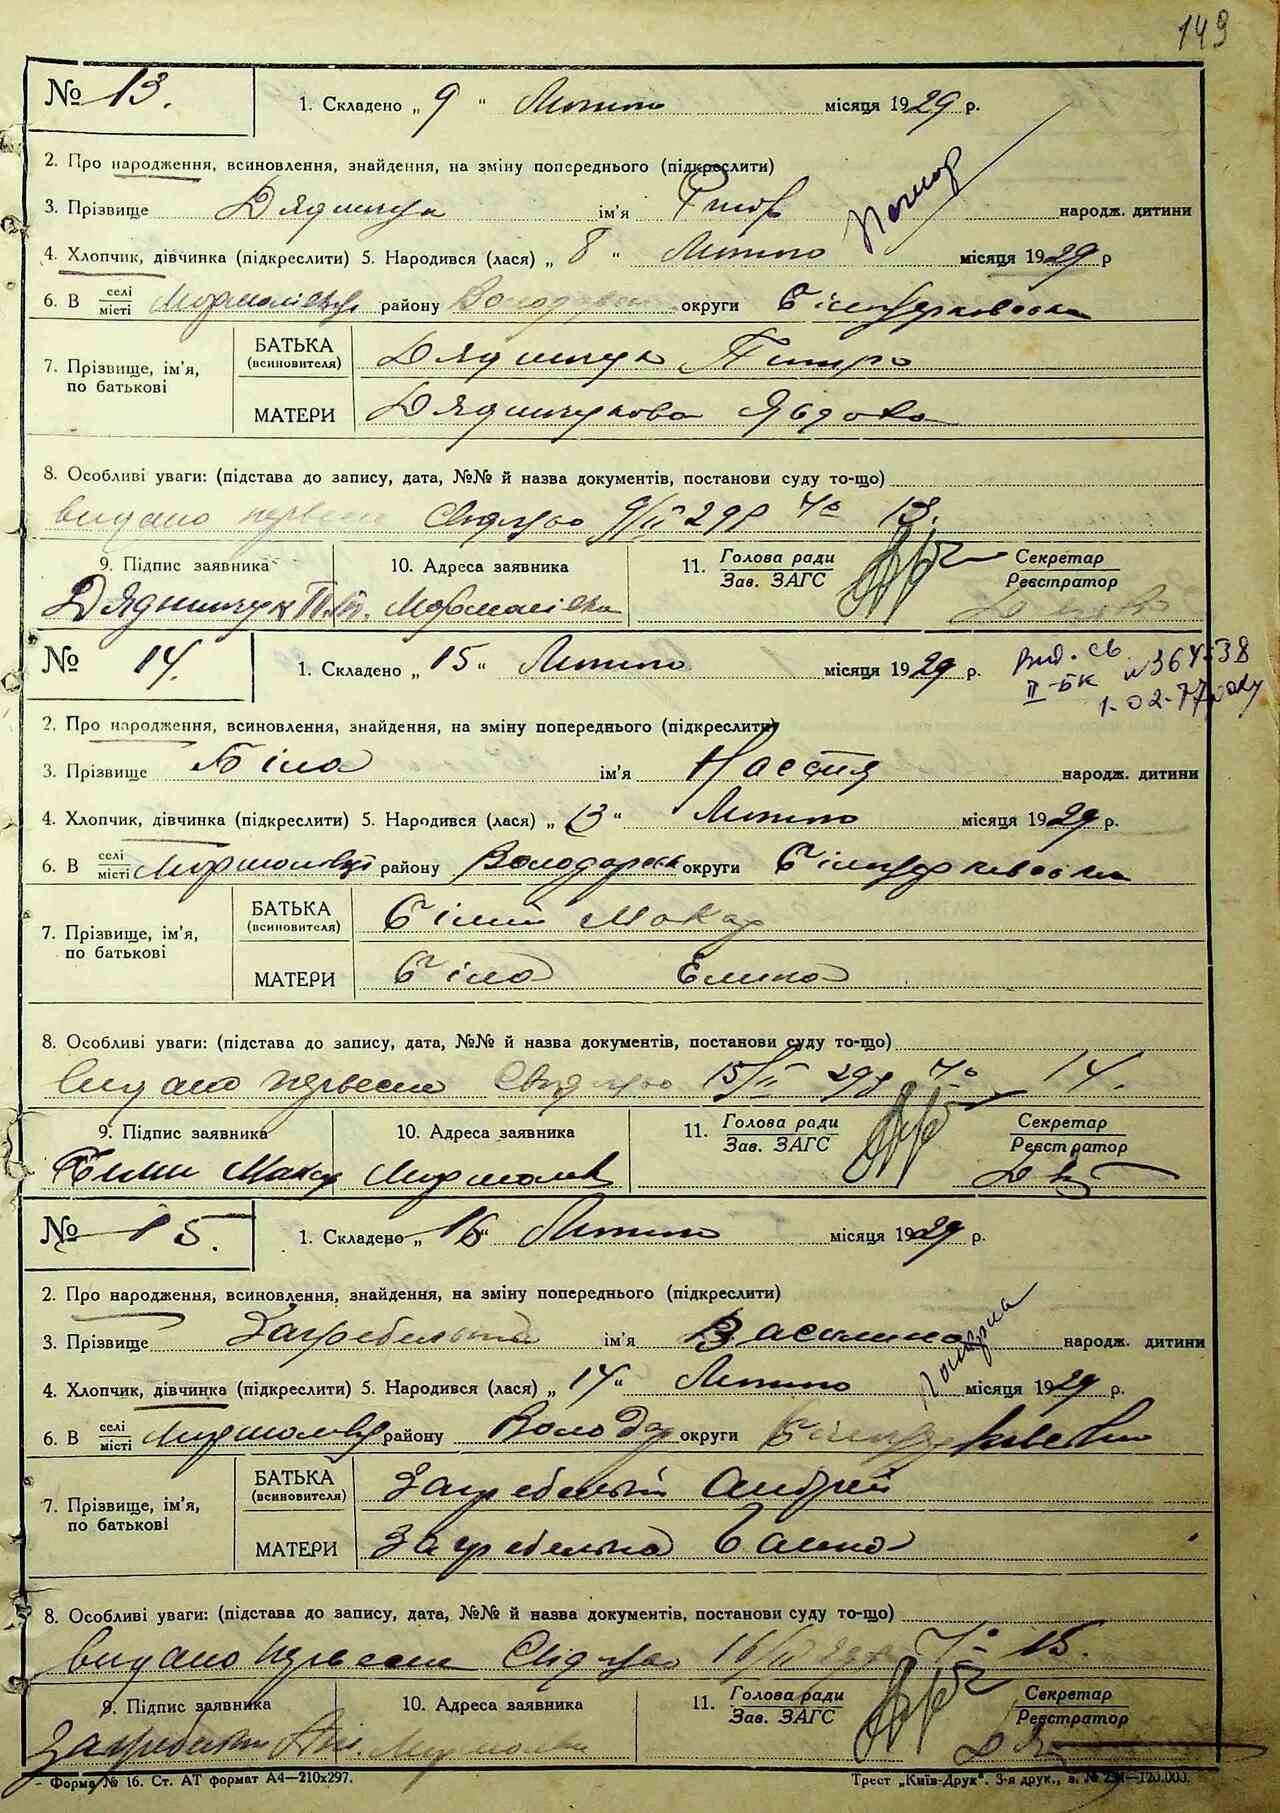 149
№ 13.
1. Складено „ 9 “ Лютого місяця 1929 р.
2. Про народження, всиновлення, знайдення, на зміну попереднього (підкреслити)
3. Прізвище Дядничук ім'я народж. дитини
Помер
4. Хлопчик, дівчинка (підкреслити) 5. Народився (лася) „ 8 “ Лютого місяця 1929 р
6. В селі/місті Мормоліївці району Володарськ округи Білоцерківська
7. Прізвище, ім'я, по батькові
БАТЬКА (всиновителя) Дядничук Петро
МАТЕРИ Дядничукова Явдоха
8. Особліві уваги: (підстава до запису, дата, №№ й назва документів, постанови суду то-що)
видано первесне свідоцтво 9/II 29р № 13.
9. Підпис заявника 10. Адреса заявника 11. Голова ради / Зав. ЗАГС Секретар / Реєстратор
Дядничук П.
№ 14.
1. Складено „ 15 “ Лютого місяця 1929 р.
Вид. св
II-БК
1-02-77
2. Про народження, всиновлення, знайдення, на зміну попереднього (підкреслити)
3. Прізвище Біла ім'я Настя народж. дитини
4. Хлопчик, дівчинка (підкреслити) 5. Народився (лася) „ 13 “ Лютого місяця 1929 р.
6. В селі/місті району Володарськ округи Білоцерківська
7. Прізвище, ім'я, по батькові
БАТЬКА (всиновителя) Білий Макар
МАТЕРИ Біла Елина
8. Особливі уваги: (підстава до запису, дата, №№ й назва документів, постанови суду то-що)
видано первесне свідоцтво 15/II 29р № 14.
9. Підпис заявника 10. Адреса заявника 11. Голова ради / Зав. ЗАГС Секретар / Реєстратор
Білий Макар
№ 15.
1. Складено „ 16 “ Лютого місяця 1929 р.
2. Про народження, всиновлення, знайдення, на зміну попереднього (підкреслити)
3. Прізвище Загребельна ім'я Василина народж. дитини
Померла
4. Хлопчик, дівчинка (підкреслити) 5. Народився (лася) „ 14 “ Лютого місяця 1929 р.
6. В селі/місті району Володар округи Білоцерківськ
7. Прізвище, ім'я, по батькові
БАТЬКА (всиновителя) Загребельний Андрій
МАТЕРИ Загребельна Ганна
8. Особливі уваги: (підстава до запису, дата, №№ й назва документів, постанови суду то-що)
видано первесне свідоцтво 16/II 29р № 15.
9. Підпис заявника 10. Адреса заявника 11. Голова ради / Зав. ЗАГС Секретар / Реєстратор
Форма № 16. Ст. АТ формат А4—210х297.
Трест „Київ-Друк“. 3-я друк., з. № —120.000.